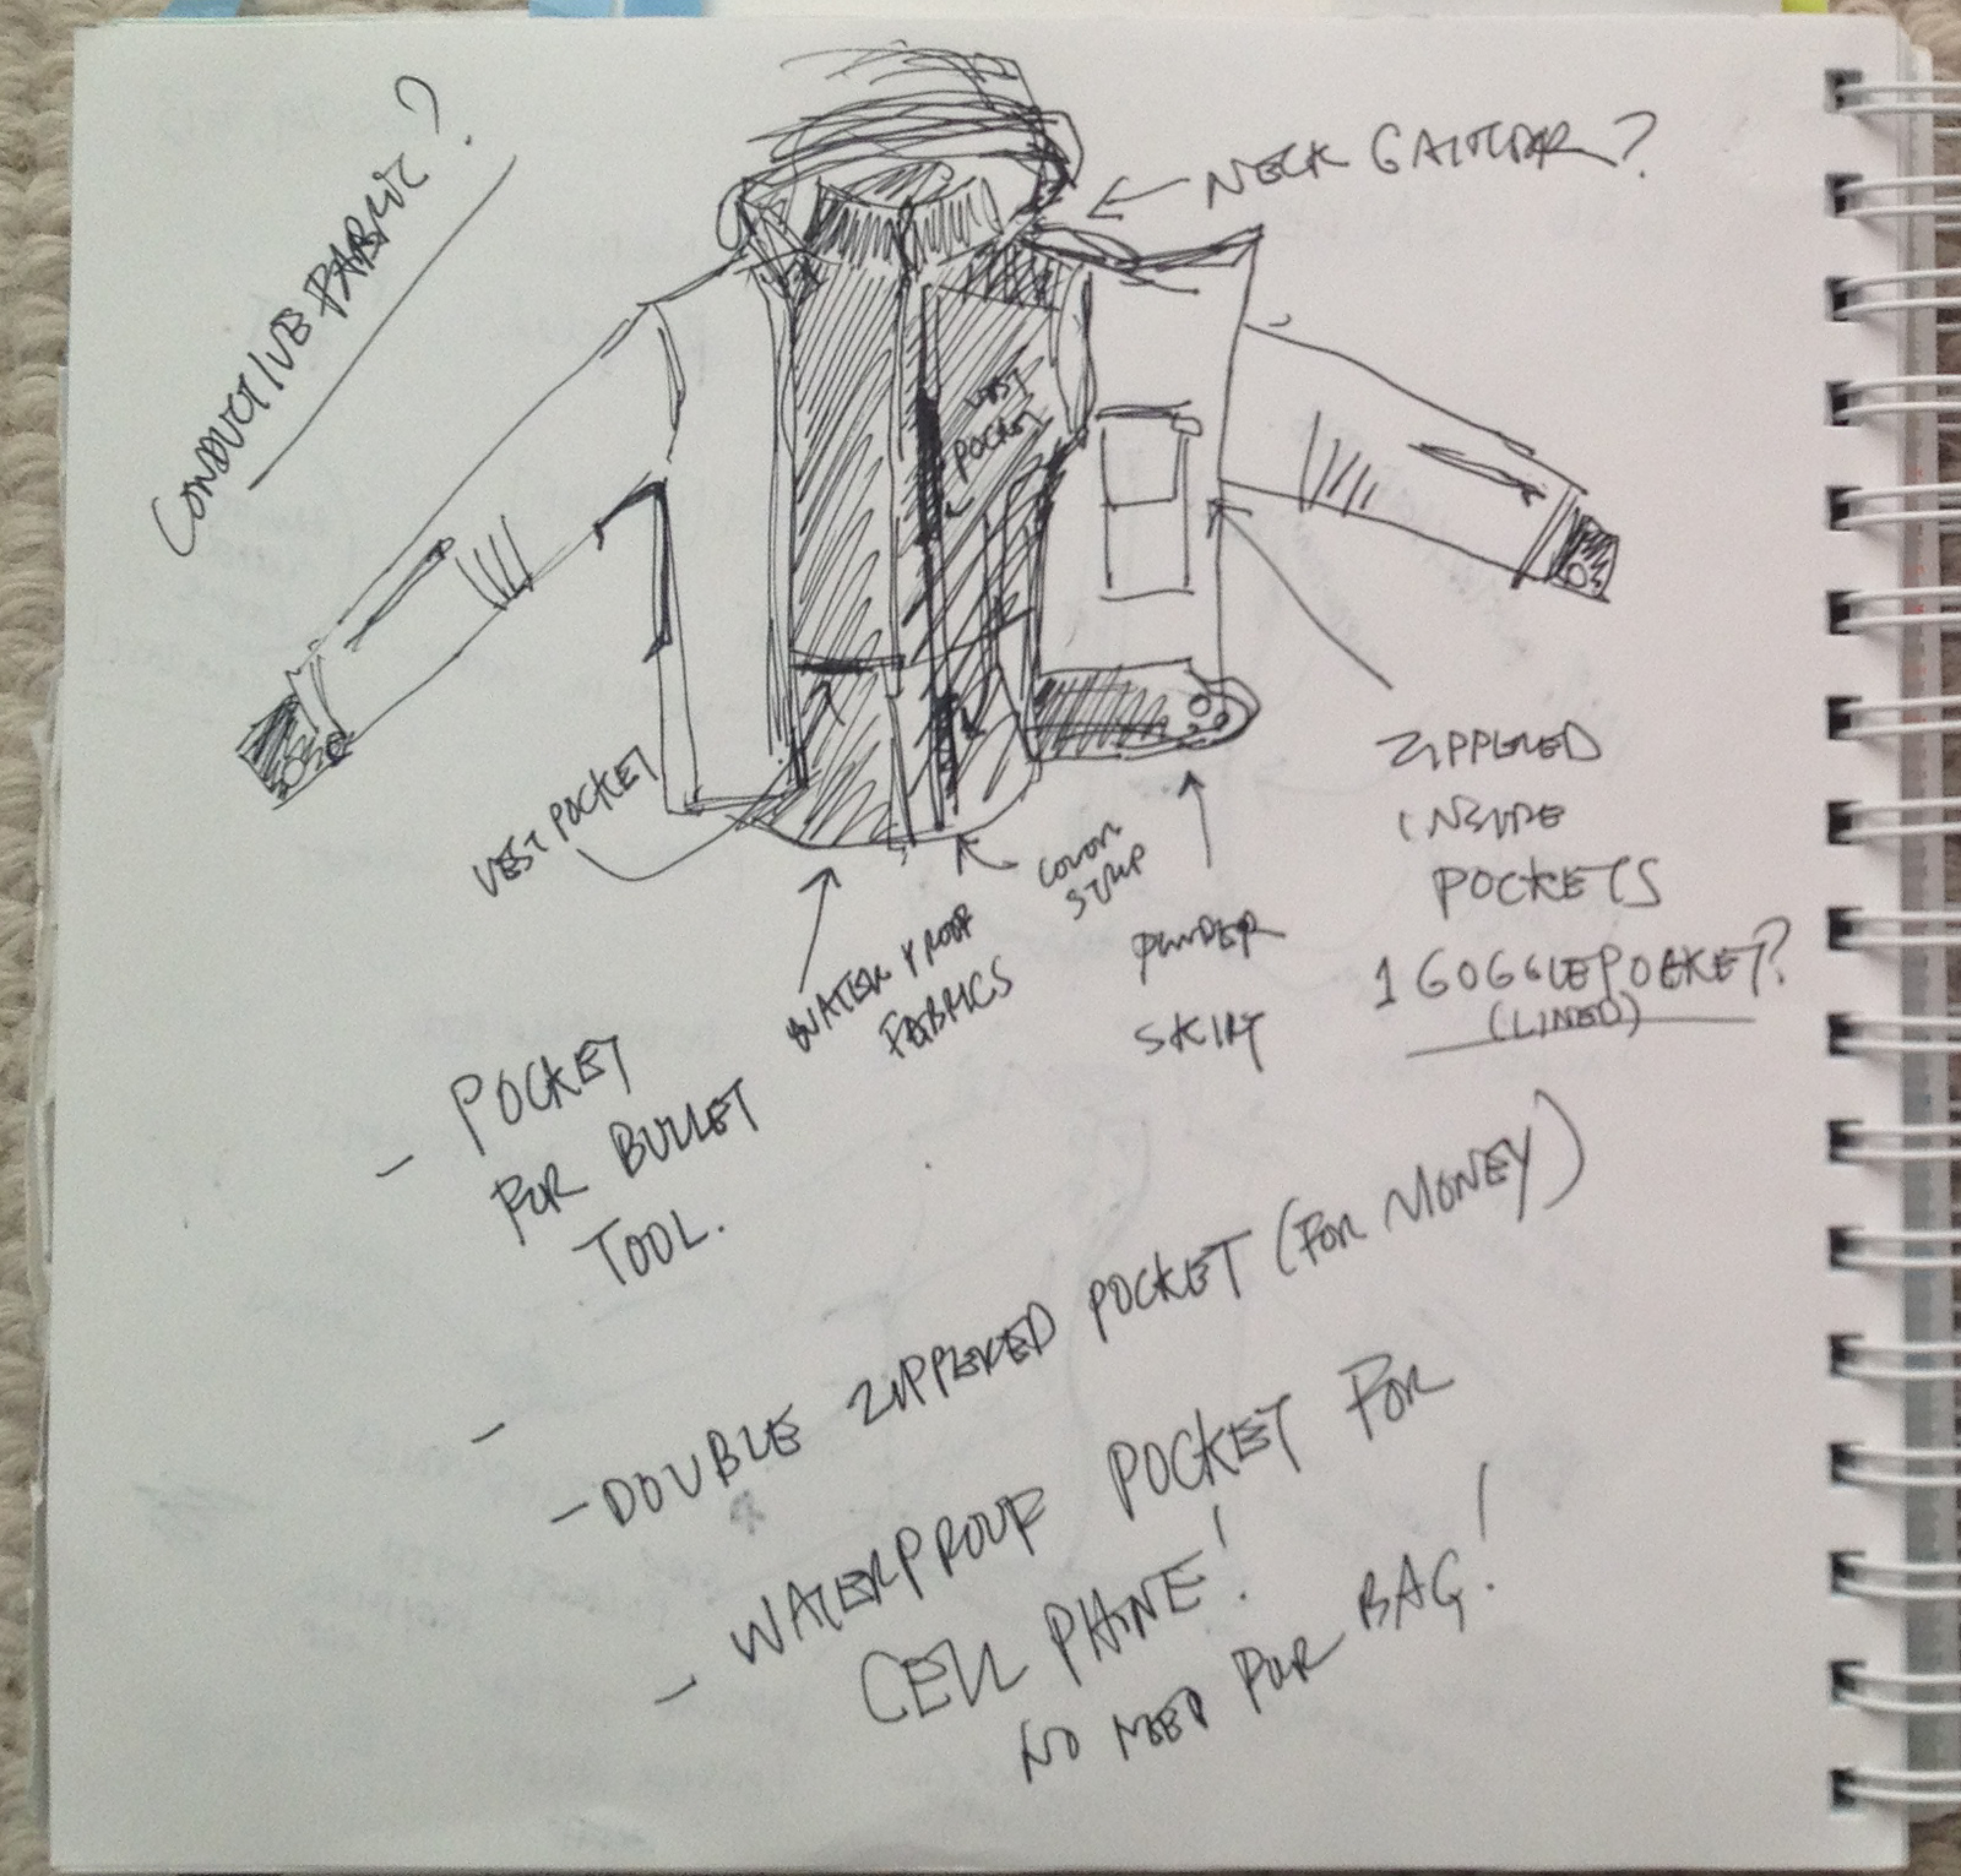 CONDUCTIVE FABRIC?
NECK GAITER?
VEST
POCKET
VEST POCKET
WATER PROOF
FABRICS
COLOR
STRIP
POWDER
SKIRT
ZIPPERED
INSIDE
POCKETS
1 GOGGLE POCKET?
(LINED)
- POCKET
FOR BULLET
TOOL.
-
- DOUBLE ZIPPERED POCKET (FOR MONEY)
- WATERPROOF POCKET FOR
CELL PHONE!
NO NEED FOR BAG!